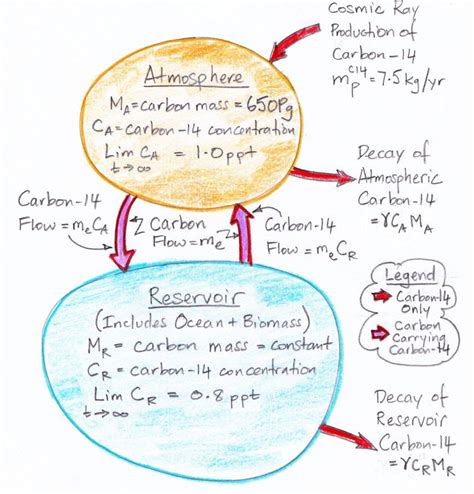 Cosmic Ray
Production of
Carbon-14
m_p^C14 = 7.5 kg/yr
Atmosphere
M_A = carbon mass = 650Pg
C_A = carbon-14 concentration
Lim C_A = 1.0 ppt
t→∞
Decay of
Atmospheric
Carbon-14
= γC_A M_A
Carbon-14
Flow = m_e C_A
Carbon
Flow = m_e
Carbon-14
Flow = m_e C_R
Legend
Carbon-14
Only
Carbon
Carrying
Carbon-14
Reservoir
(Includes Ocean + Biomass)
M_R = carbon mass = constant
C_R = carbon-14 concentration
Lim C_R = 0.8 ppt
t→∞
Decay of
Reservoir
Carbon-14
= γC_R M_R